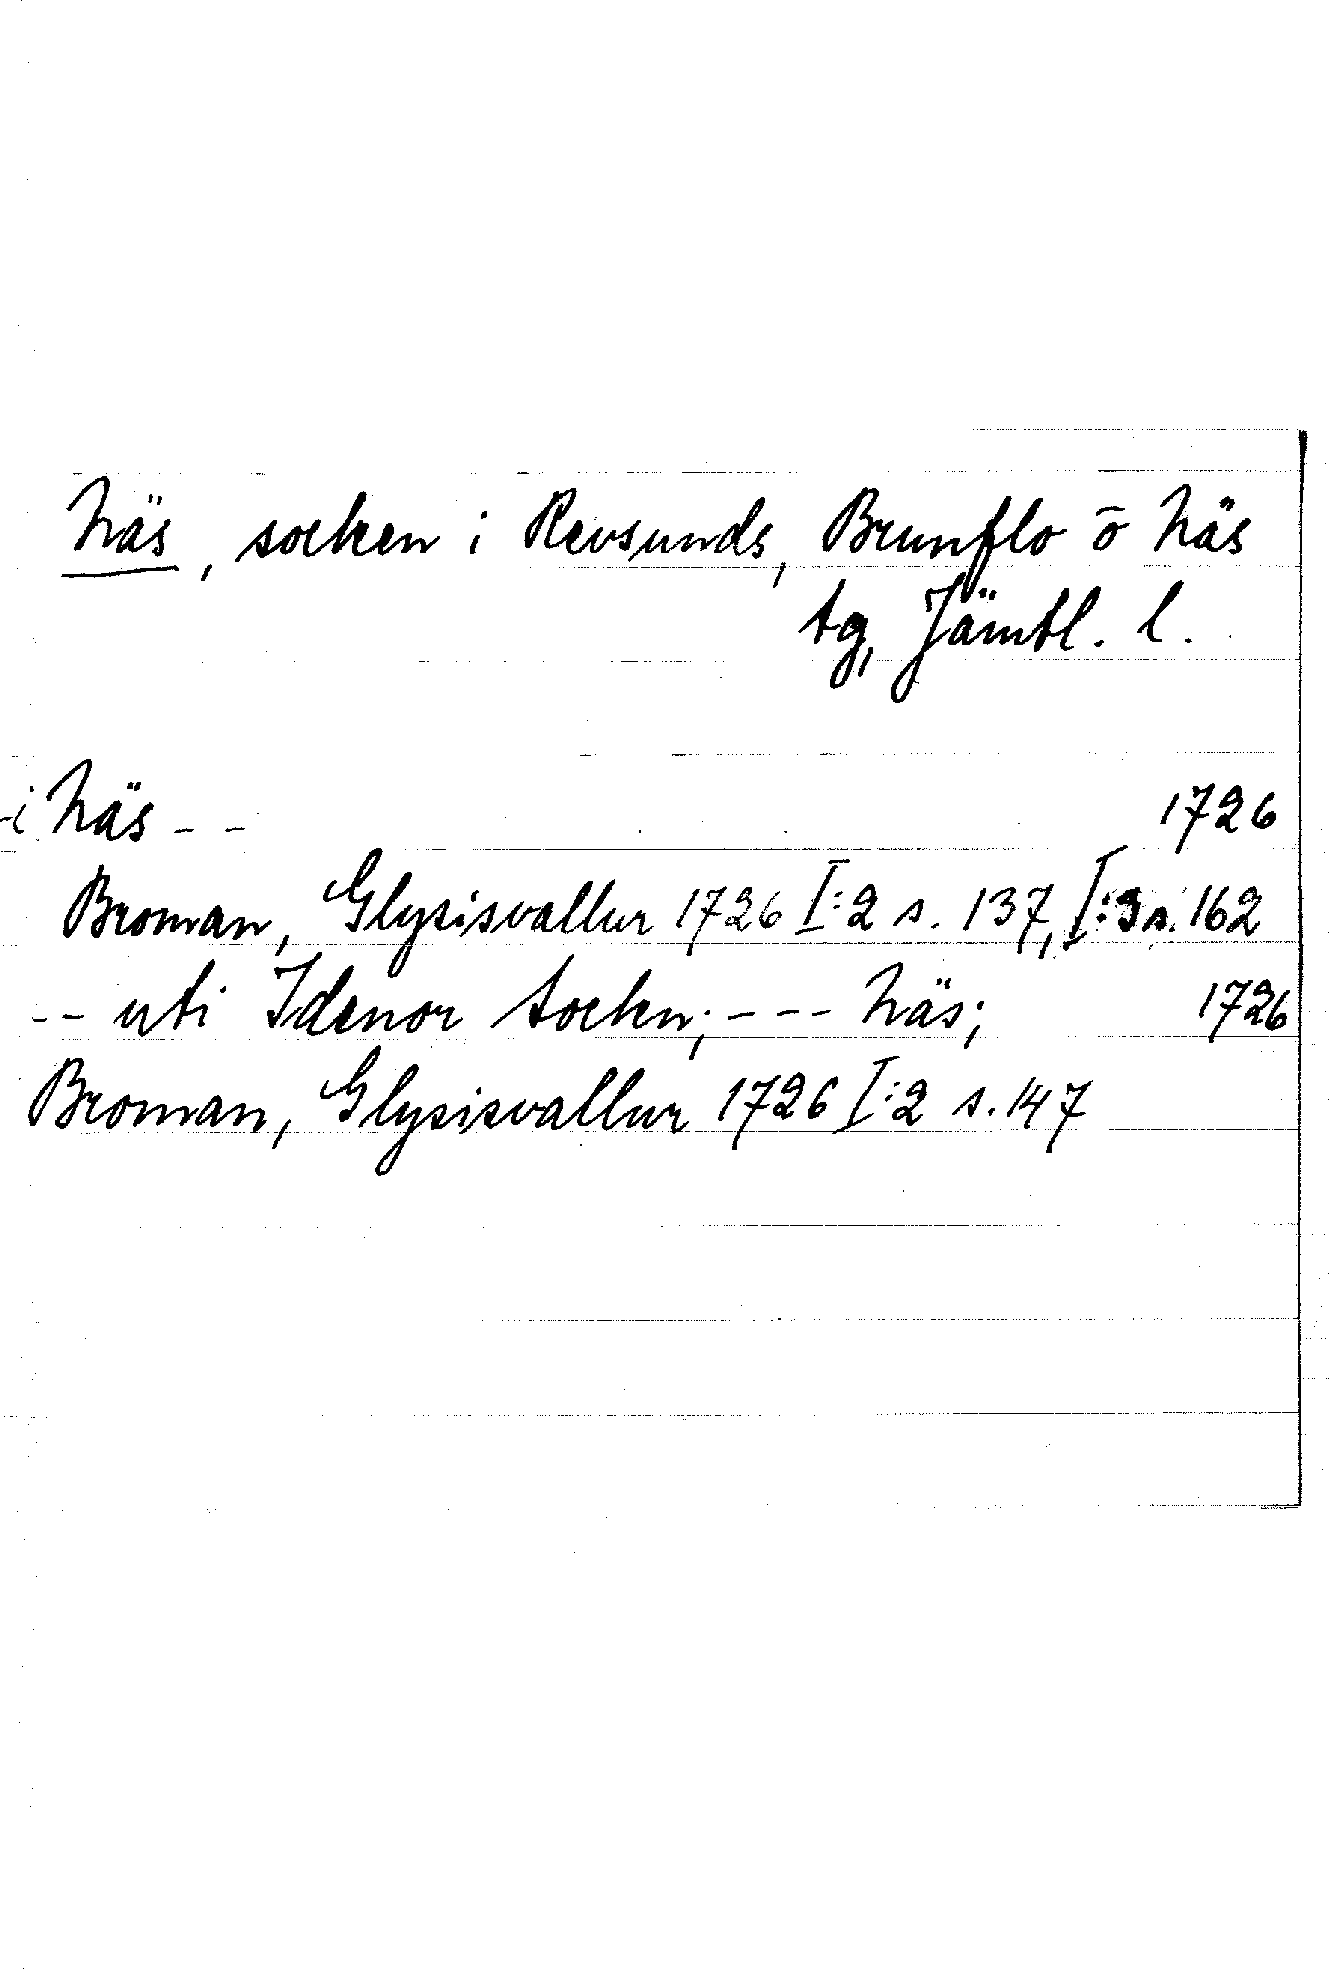 Näs, socken i Revsunds, Brunflo o Näs
tg, Jämtl. l.
-i Näs -- 1726
Broman, Glysisvallur 1726 I:2 s. 137, I:3 s. 162
-- uti Idenor Sockn; --- Näs; 1726
Broman, Glysisvallur 1726 I:2 s. 147